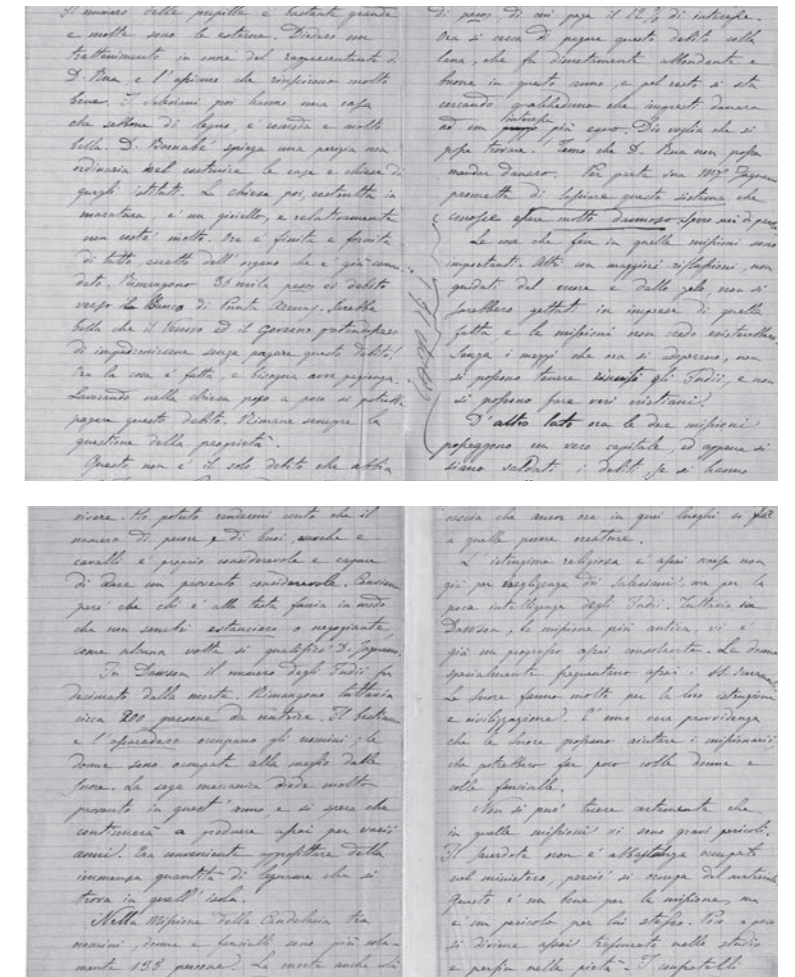 Il numero delle pupille è bastante grande
e molte sono le esterne. Diedero un
trattenimento in onore del rappresentante di
D. Rua, e l'esprimo che riuscirono molto
bene. I Salesiani poi hanno una casa
che sebbene di legno, è comoda e molto
bella. D. Bernabé spiega una perizia non
ordinaria nel costruire le case e chiese di
quegli istituti. La chiesa poi, costrutta in
muratura, è un gioiello, e relativamente
non costò molto. Ora è finita e fornita
di tutto, eccetto dell'organo che è già
dato. Rimangono 36 mila pesos di debito
verso il Banco di Punta Arenas. Sarebbe
bella che il Vescovo ed il Governo pretendessero
di impadronirsene senza pagare questo debito!
Ora la cosa è fatta, e bisogna aver pazienza.
Lavorando nella chiesa poco a poco si potrebbe
pagare questo debito. Rimane sempre la
questione della proprietà.
Questo non è il solo debito che abbia
di pesos, di cui paga il 12 % di interesse.
Ora si cerca di pagare questo debito colla
lana, che fu discretamente abbondante e
buona in questo anno, e pel resto si sta
cercando qualcheduno che impresti danaro
ad un interesse più equo. Dio voglia che si
possa trovare! Temo che D. Rua non possa
mandar danaro. Per parte sua Mgr Fagnano
promette di lasciare questo sistema che
conosce essere molto dannoso. Spero sarà di
Le cose che fece in quelle missioni sono
importanti. Altri con maggiori riflessioni, non
guidati dal cuore e dallo zelo, non si
sarebbero gettati in imprese di quella
fatta, e le missioni non credo esisterebbero.
Senza i mezzi che ora si adoperano, non
si possono tenere riuniti gli Indii, e non
si possono fare veri cristiani.
D'altro lato ora le due missioni
posseggono un vero capitale, ed appena si
siano saldati i debiti, se si hanno
vivere. Ho potuto rendermi conto che il
numero di pecore, e di buoi, vacche e
cavalli è proprio considerevole e capace
di dare un provento considerevole. Conviene
però che chi è alla testa faccia in modo
che non sembri estanciero o negoziante,
come alcuna volta si qualificò D.
In Dawson il numero degli Indii fu
decimato dalla morte. Rimangono tuttavia
circa 200 persone da nutrire. Il bestiame
e l'aserradero occupano gli uomini; le
donne sono occupate alla maglia dalle
Suore. La sega meccanica diede molto
provento in quest'anno, e si spera che
continuerà a produrre assai per varii
anni. Era conveniente approfittare della
immensa quantità di legname che si
trova in quell'isola.
Nella Missione della Candelaria tra
uomini, donne e fanciulli sono più sola-
mente 133 persone. La morte anche colà
caccia che ancor ora in quei luoghi si fa
a quelle povere creature.
L'istruzione religiosa è assai scarsa non
già per negligenza dei Salesiani, ma per la
poca intelligenza degli Indii. Tuttavia in
Dawson, la missione più antica, vi è
già un progresso assai consolante. Le donne
specialmente frequentano assai i SS. Sacramenti
Le Suore fanno molto per la loro istruzione
e civilizzazione. È una vera provvidenza
che le Suore possano aiutare i missionarii
che potrebbero far poco colle donne e
colle fanciulle.
Non si può tacere certamente che
in quelle missioni vi sono gravi pericoli.
Il sacerdote non è abbastanza occupato
col ministero, perciò si occupa del materiale.
Questo è un bene per la missione, ma
è un pericolo per lui stesso. Poco a poco
si diviene assai trascurato nello studio
e persin nella pietà. I confratelli